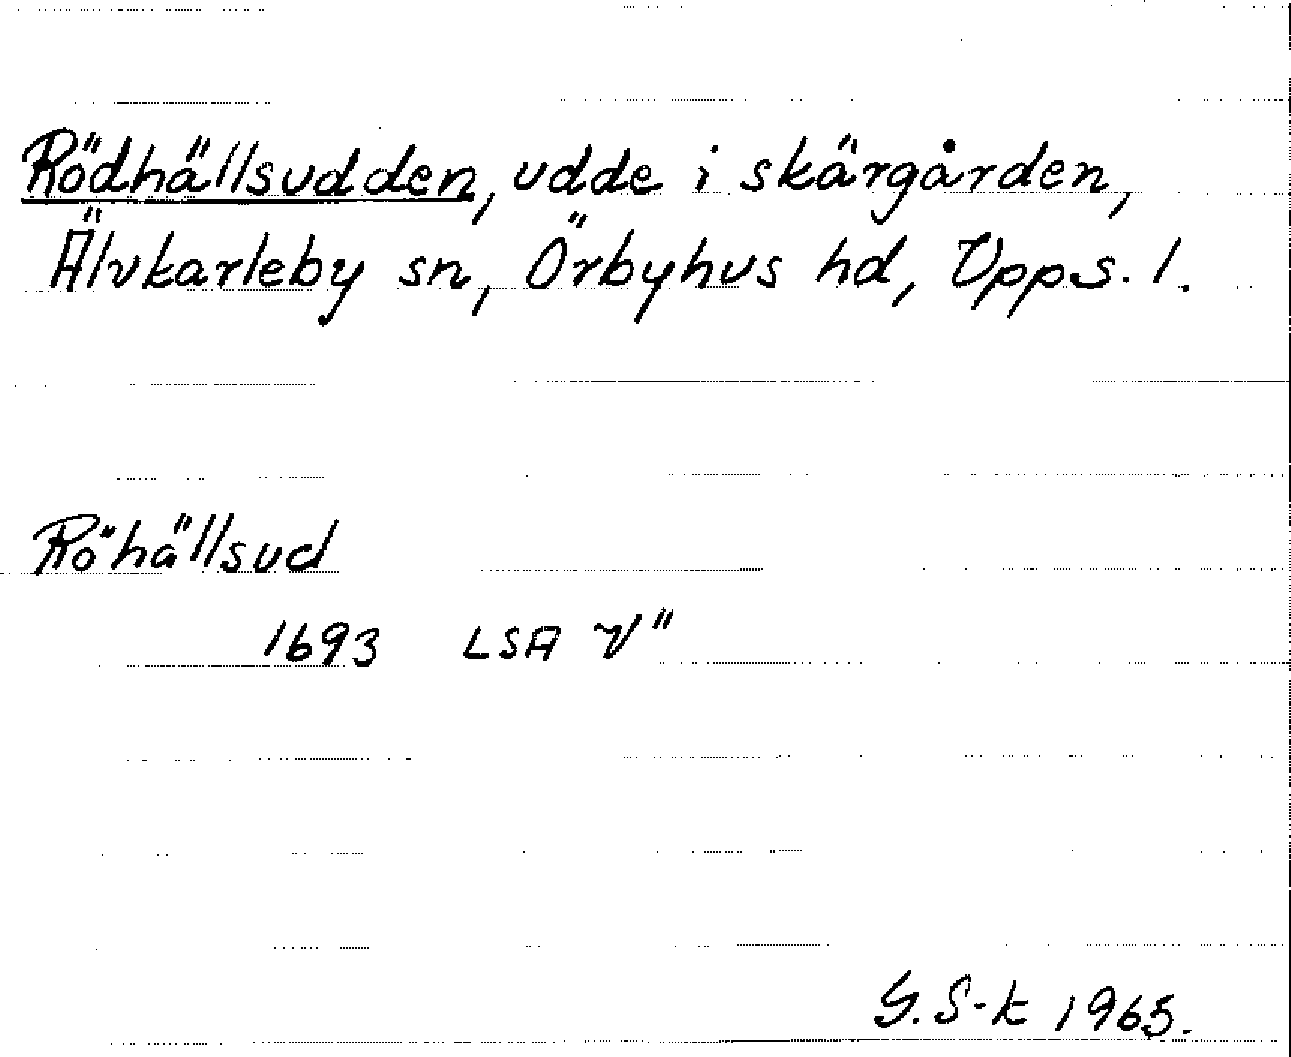 Rödhällsudden, udde i skärgården,
Älvkarleby sn, Örbyhus hd, Upps. l.
Röhällsud
1693 LSA V"
G. S-k 1965.